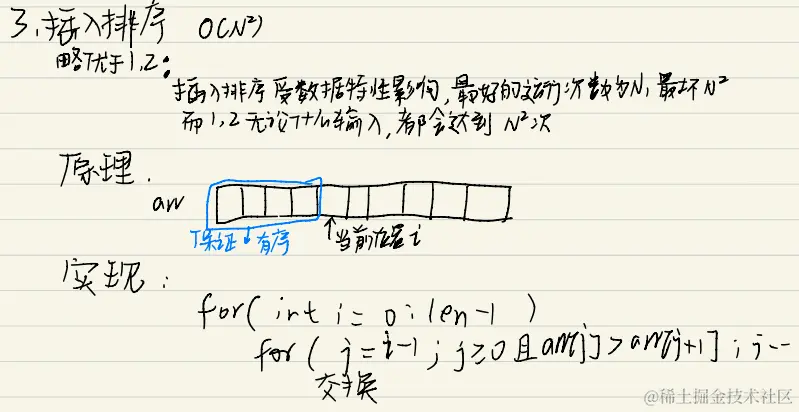 3.插入排序 O(N²)
略优于1,2:
插入排序受数据特性影响,最好的运行次数为N,最坏N²
而1,2无论什么样输入,都会达到N²次
原理:
arr
保证↓有序
↑当前位置i
实现:
for( int i = 0 : len-1 )
for( j = i-1 ; j≥0 且 arr[j] > arr[j+1] ; j--
交换
@稀土掘金技术社区